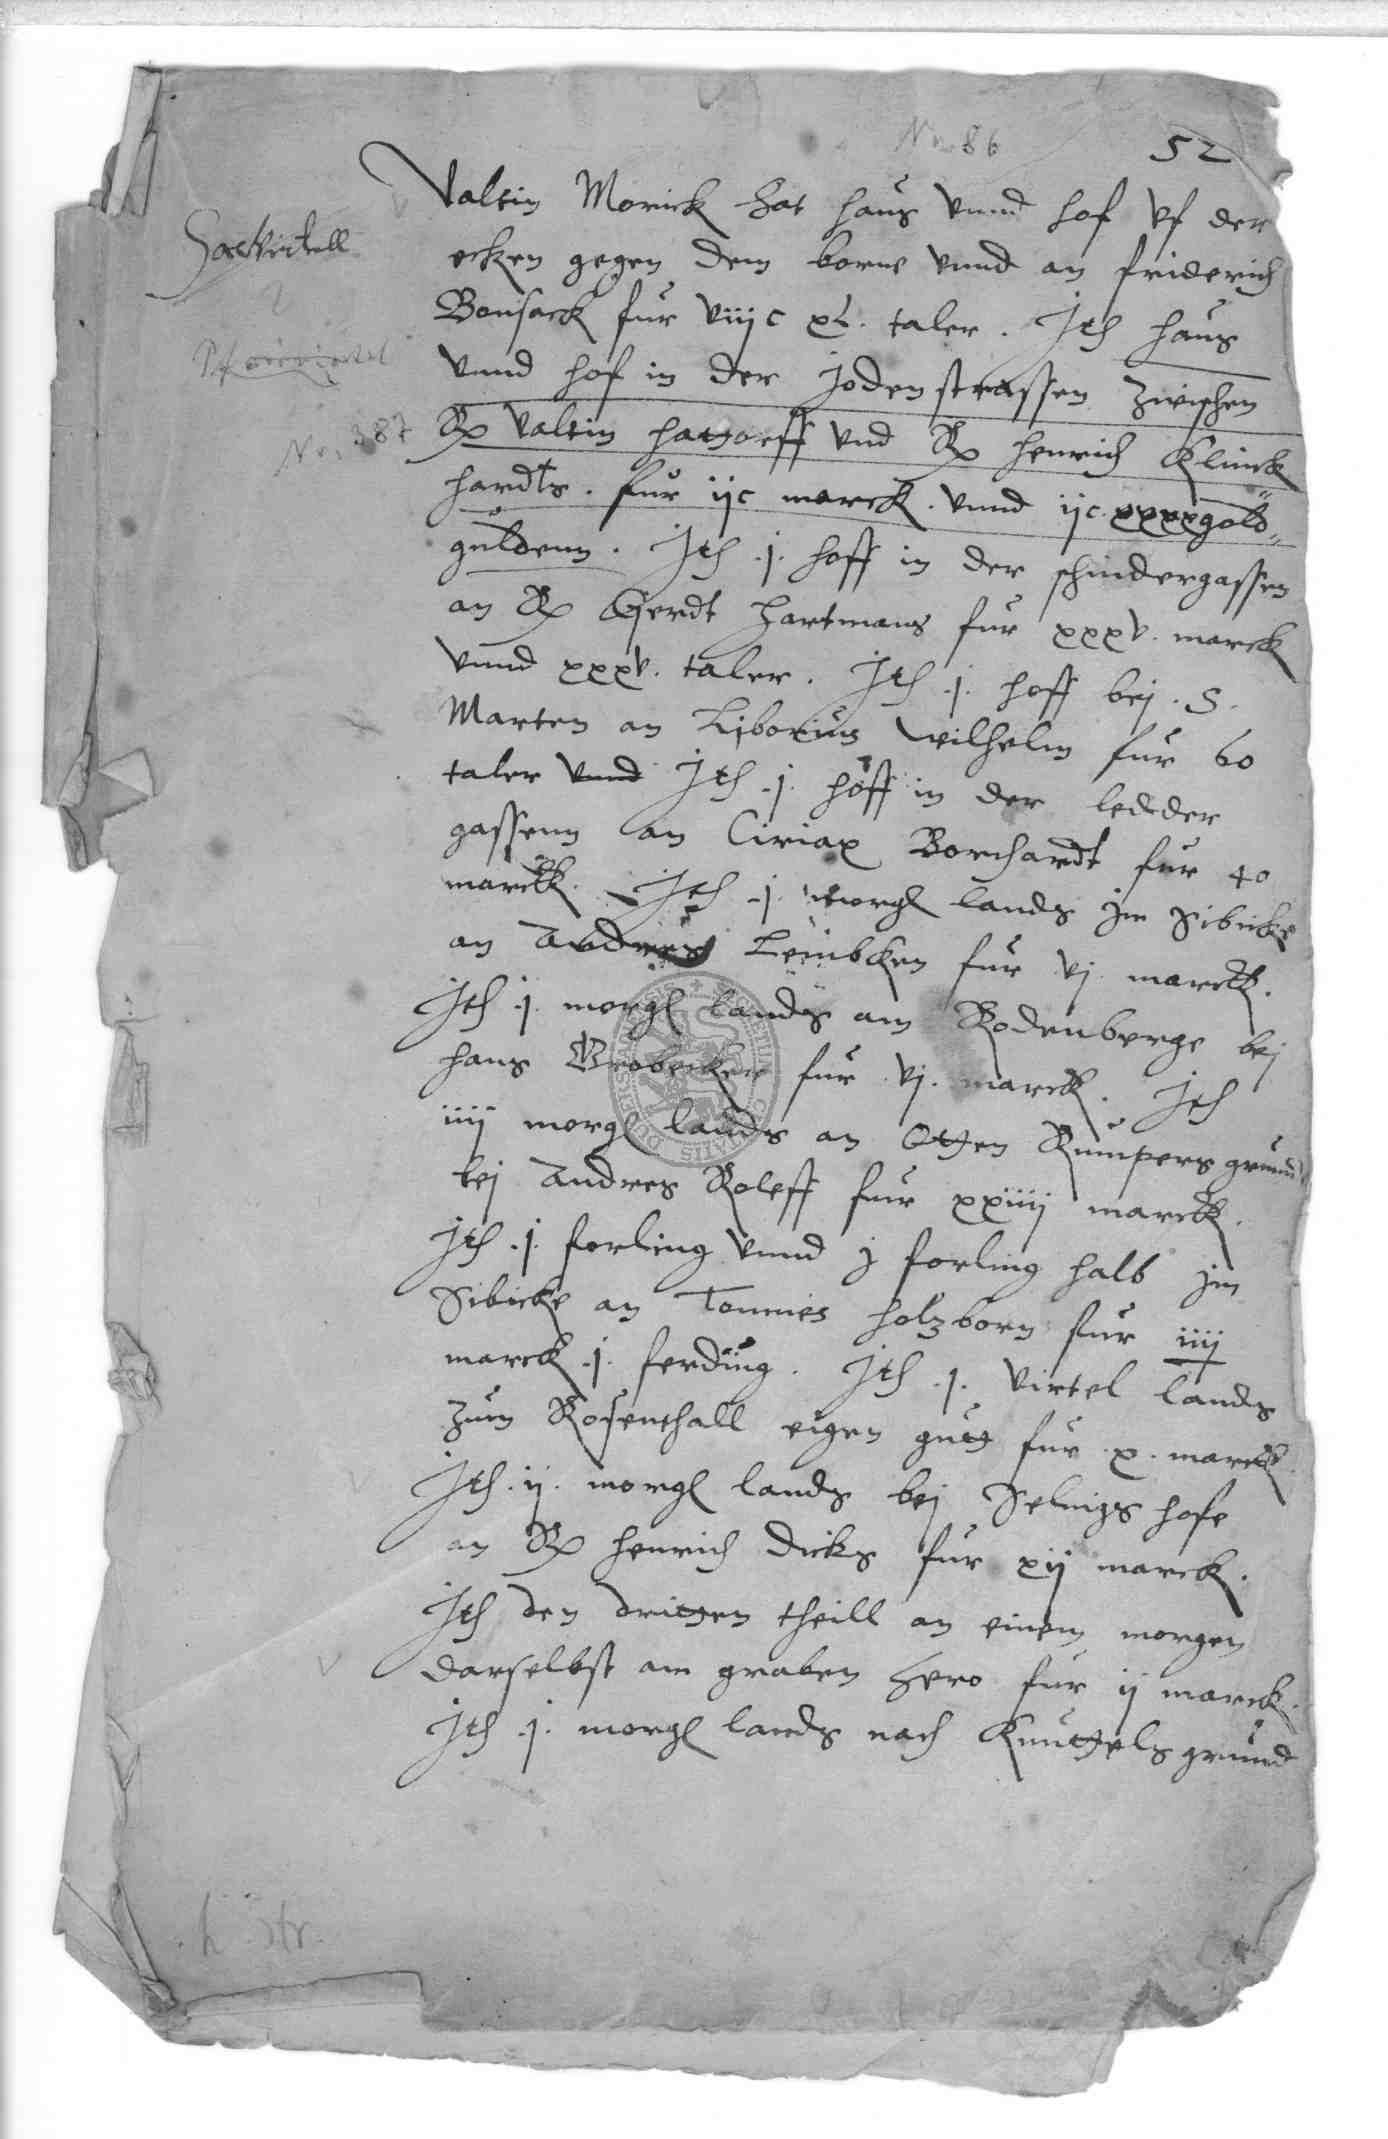 Nr. 86
52
Valtin Morick hat haus vnnd hof vf der
Sackvirtell
ecken gegen dem borne vnnd an friderich
Bonsack fur viijc xl. taler. Jth haus
vnnd hof in der Jodenstrassen zwischen
Nr. 387
Valtin hattorff vnd henrich Klinck
hardts. fur ijc marck. vnnd ijc. xxxx gold
guldenn. Jth .j. hoff in der schindergassen
an Gerdt Hartmans fur xxxv. marck
vnnd xxxv. taler. Jth .j. hoff bej .S.
Marten an Liborius wilhelm fur 60
taler vnnd Jth .j. hoff in der ledder
gassenn an Ciriax Borchardt fur 40
marck. Jth .j. morgl lands jm Sibicke
an Andres Leinbken fur vj marck.
Jth .j. morgl lands am Rodenberge bej
hans Brobecker fur .vj. marck. Jth
iiij morgl lands an Otten Rumpers grund
bej Andres Roleff fur xxiiij marck.
Jth .j. forling vnnd j forling halb jm
Sibicke an Tonnies holzborn fur iiij
marck .j. ferding. Jth .j. virtel lands
zum Rosenthall eigen gutt fur .x. marck
Jth .ij. morgl lands bej Selnigs hofe
an henrich Dicks fur xij marck.
Jth den dritten theill an einem morgen
darselbst am graben hero fur ij marck.
Jth .j. morgl lands nach Knuttels grund
SIGILLUM CIVITATIS DUDERSTADENSIS